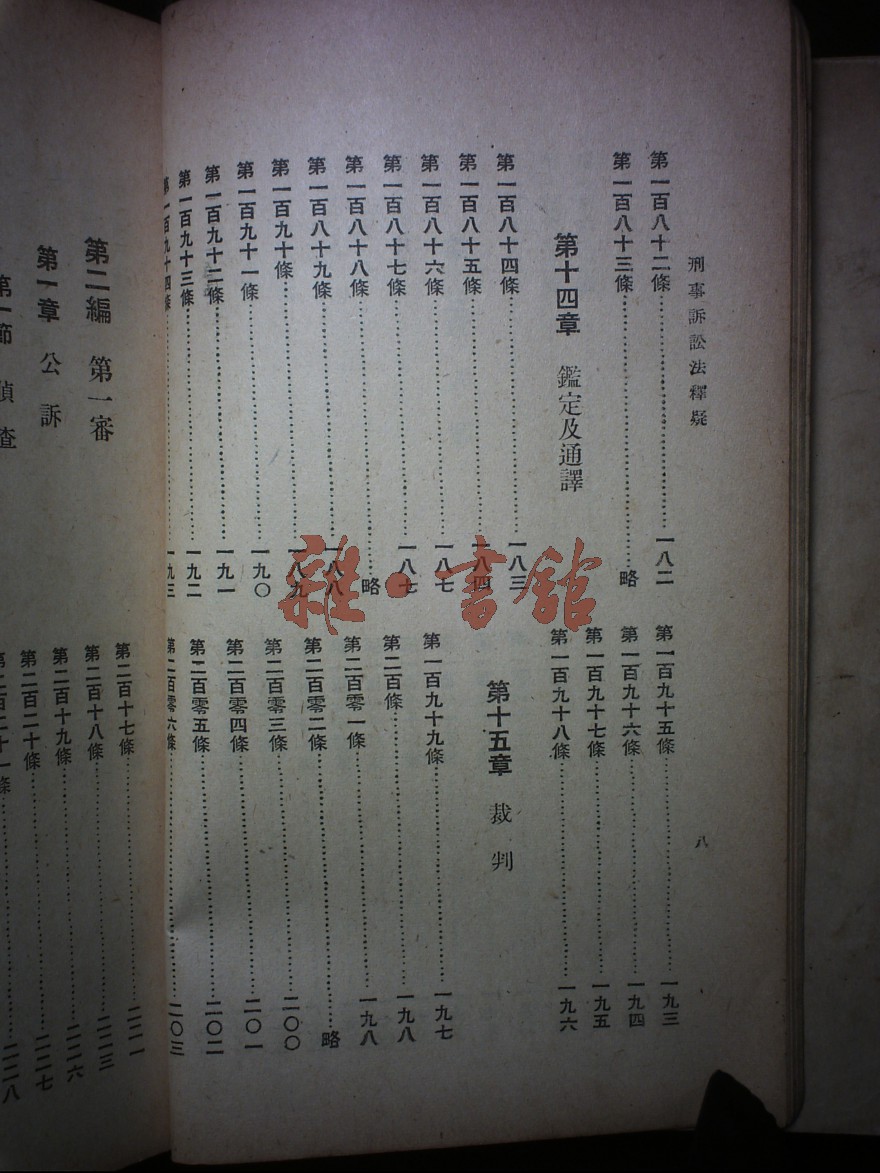 刑事訴訟法釋疑
八
第一百八十二條……一八二
第一百八十三條……略
第十四章 鑑定及通譯
第一百八十四條……一八三
第一百八十五條……一八四
第一百八十六條……一八七
第一百八十七條……一八七
第一百八十八條……略
第一百八十九條……一八八
第一百九十條……一八九
第一百九十一條……一九〇
第一百九十二條……一九一
第一百九十三條……一九二
第一百九十四條……一九三
第一百九十五條……一九三
第一百九十六條……一九四
第一百九十七條……一九五
第一百九十八條……一九六
第十五章 裁判
第一百九十九條……一九七
第二百條……一九八
第二百零一條……一九八
第二百零二條……略
第二百零三條……二〇〇
第二百零四條……二〇一
第二百零五條……二〇二
第二百零六條……二〇三
第二編 第一審
第一章 公訴
第一節 偵查
第二百十七條……二二一
第二百十八條……二二三
第二百十九條……二二六
第二百二十條……二二七
第二百二十一條……二二八
雜·書館